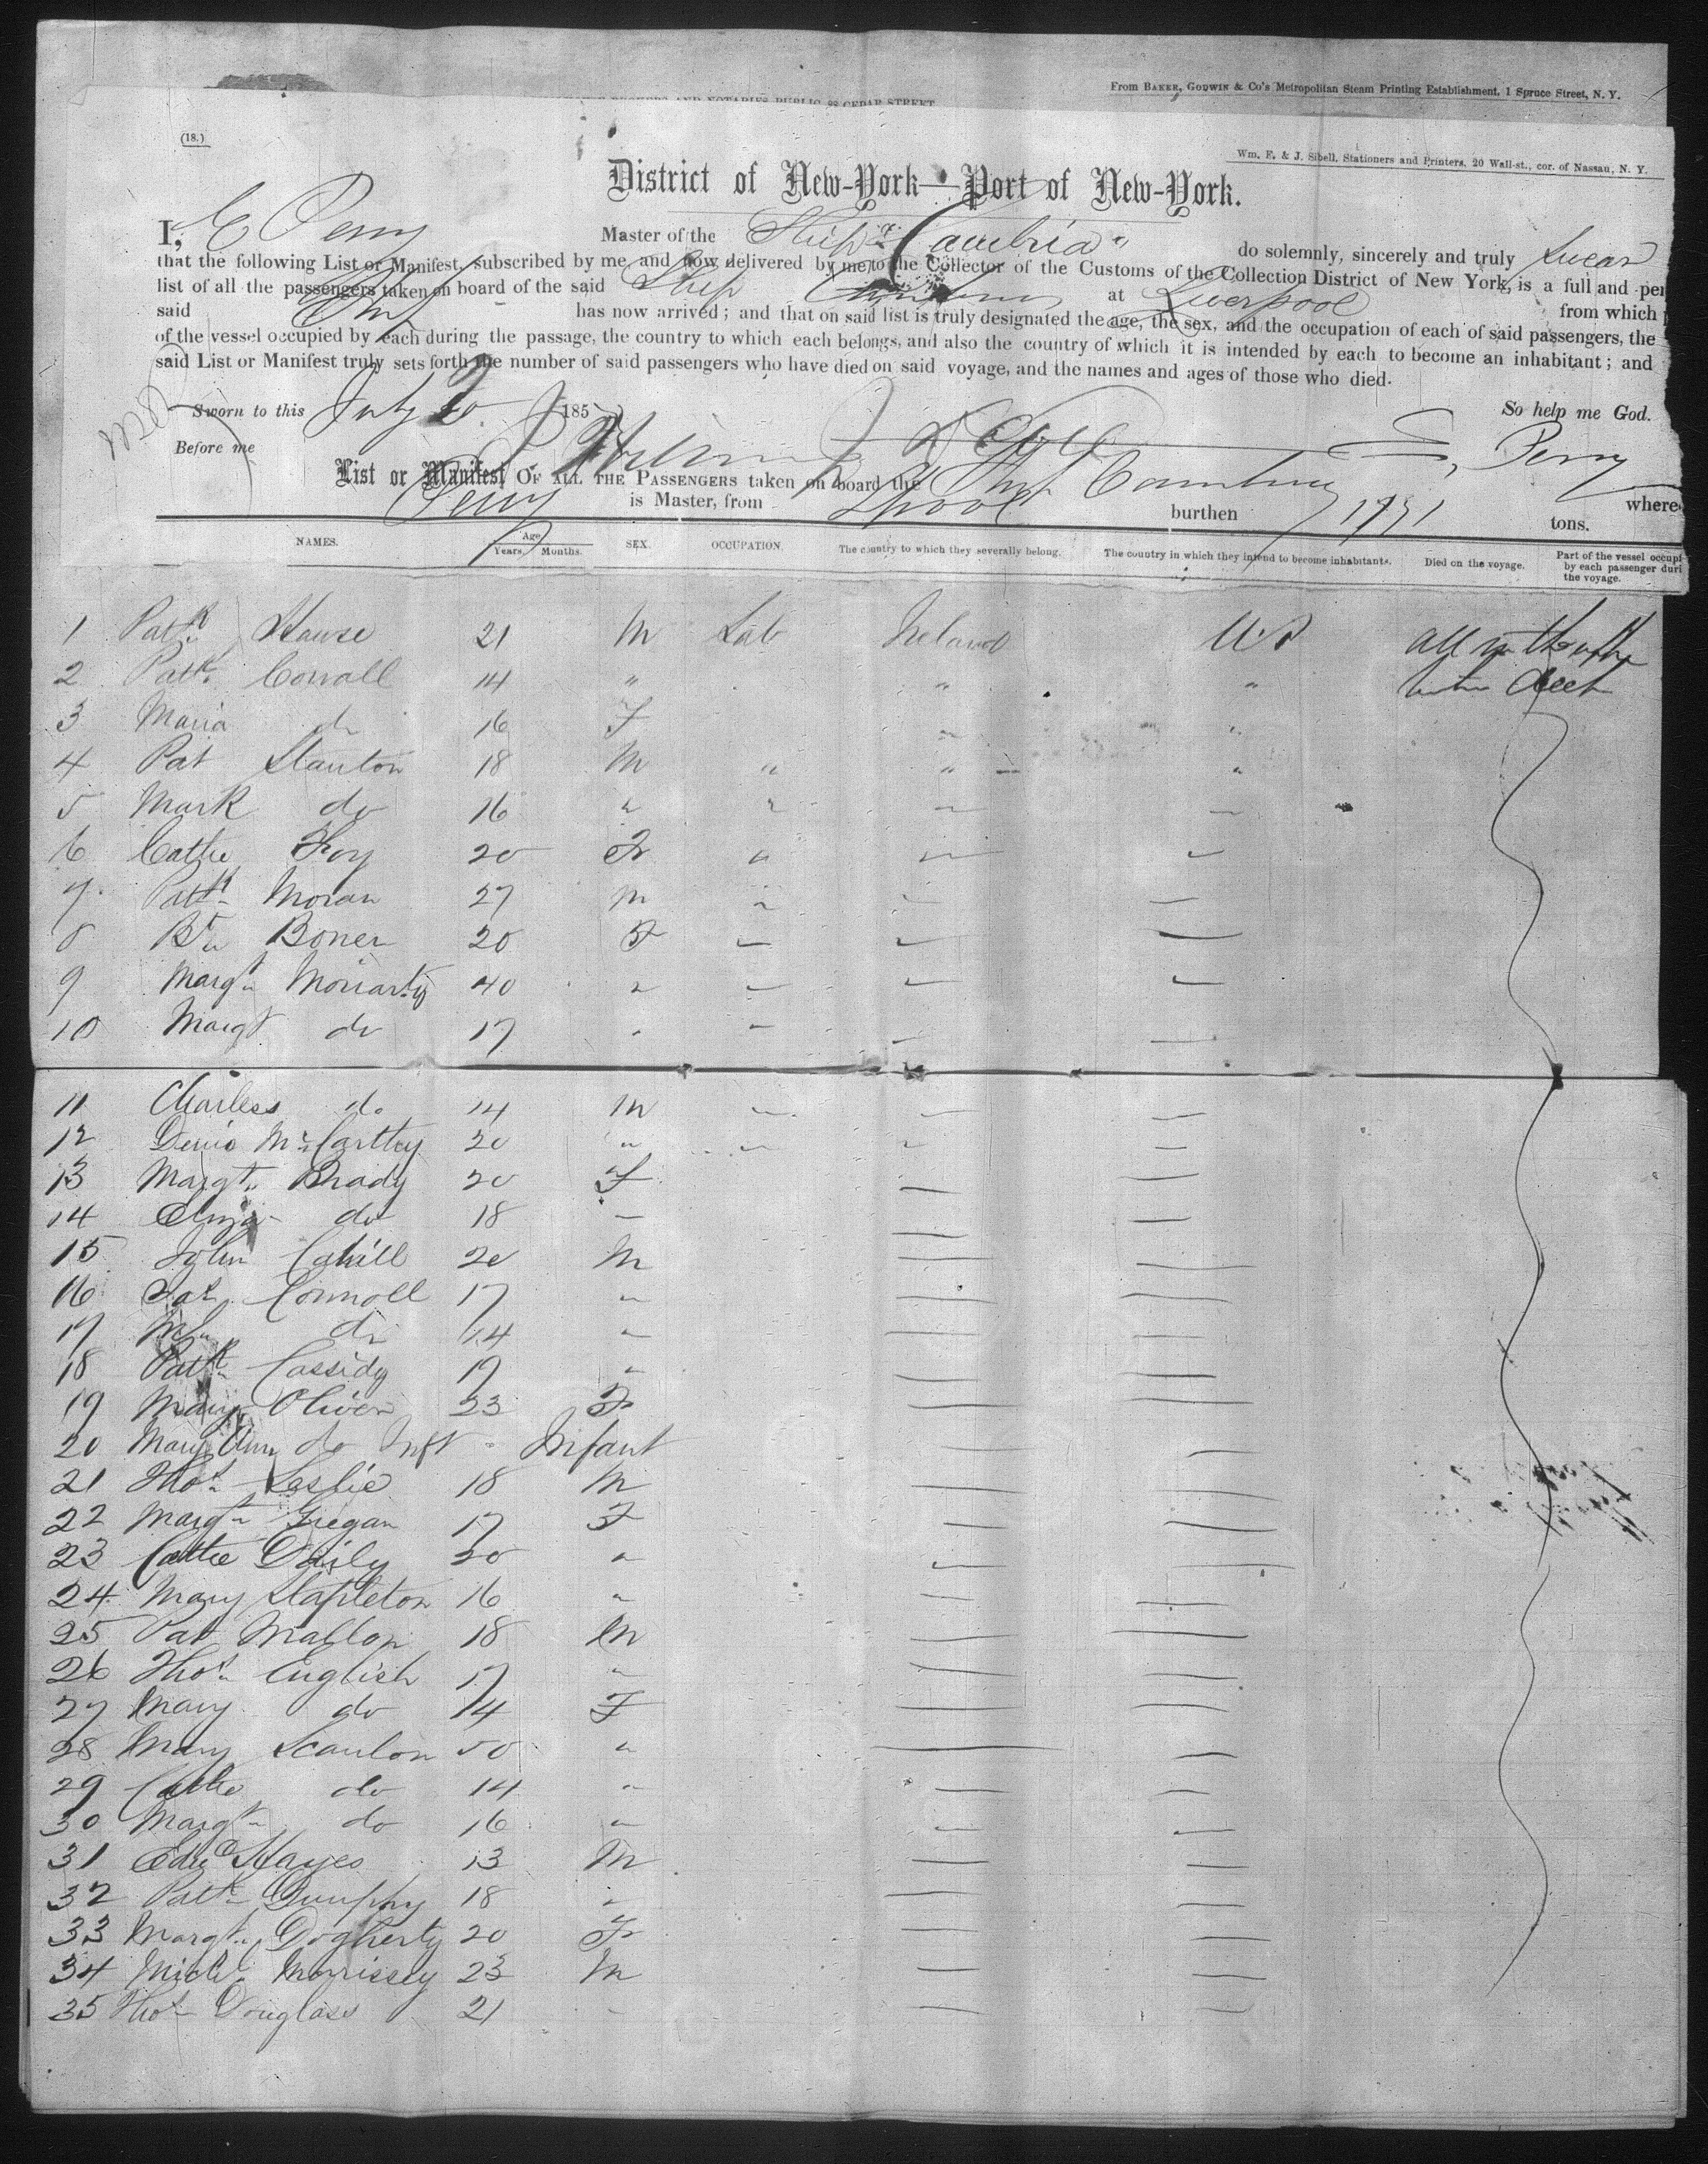 From BAKER, GODWIN & Co's Metropolitan Steam Printing Establishment, 1 Spruce Street, N. Y.
AND NOTARIES PUBLIC, 88 CEDAR STREET
(18.)
Wm. E. & J. Sibell, Stationers and Printers, 20 Wall-st., cor. of Nassau, N. Y.
District of New-York—Port of New-York.
I, E Perry Master of the Ship "Cambria" do solemnly, sincerely and truly swear
that the following List or Manifest, subscribed by me, and now delivered by me to the Collector of the Customs of the Collection District of New York, is a full and per
list of all the passengers taken on board of the said Ship at Liverpool from which
said Ship has now arrived; and that on said list is truly designated the age, the sex, and the occupation of each of said passengers, the
of the vessel occupied by each during the passage, the country to which each belongs, and also the country of which it is intended by each to become an inhabitant; and
said List or Manifest truly sets forth the number of said passengers who have died on said voyage, and the names and ages of those who died.
Sworn to this July 20 185 So help me God.
Before me E, Perry
List or Manifest OF ALL THE PASSENGERS taken on board the Ship Cambria where
Perry is Master, from Lpool burthen tons.
NAMES. Age Years, Months. SEX. OCCUPATION. The country to which they severally belong. The country in which they intend to become inhabitants. Died on the voyage. Part of the vessel occupi by each passenger duri the voyage.
1 Patk Hawse 21 M Lab Ireland US all in the upper
2 Patk Corrall 14 " " " Deck
3 Maria do 16 F " "
4 Pat Stanton 18 M " " "
5 Mark do 16 " " " "
6 Cathe Foy 20 F " " "
7 Patk Moran 27 M " " "
8 Bt Boner 20 F " " "
9 Margt Moriarty 40 " " " "
10 Margt do 17 " " " "
11 Charless do 14 M " " "
12 Denis McCarthy 20 " " " "
13 Margt Brady 20 F
14 Eliza do 18
15 John Cahill 20 M
16 Pat Connoll 17 "
17 do 14 "
18 Patk Cassidy 19 "
19 Mary Oliver 23 F
20 Mary Ann do Inft Infant
21 Thos Leslie 18 M
22 Margt Gregan 17 F
23 Cathe Daily 20 "
24 Mary Stapleton 16 "
25 Pat Mallon 18 M
26 Thos English 17 "
27 Mary do 14 F
28 Mary Scanlon 50 "
29 Cathe do 14 "
30 Margt do 16 "
31 Edw Hayes 13 M
32 Patk Dunphy 18 "
33 Margt Dogherty 20 F
34 Michl Morrissey 23 M
35 Thos Douglass 21